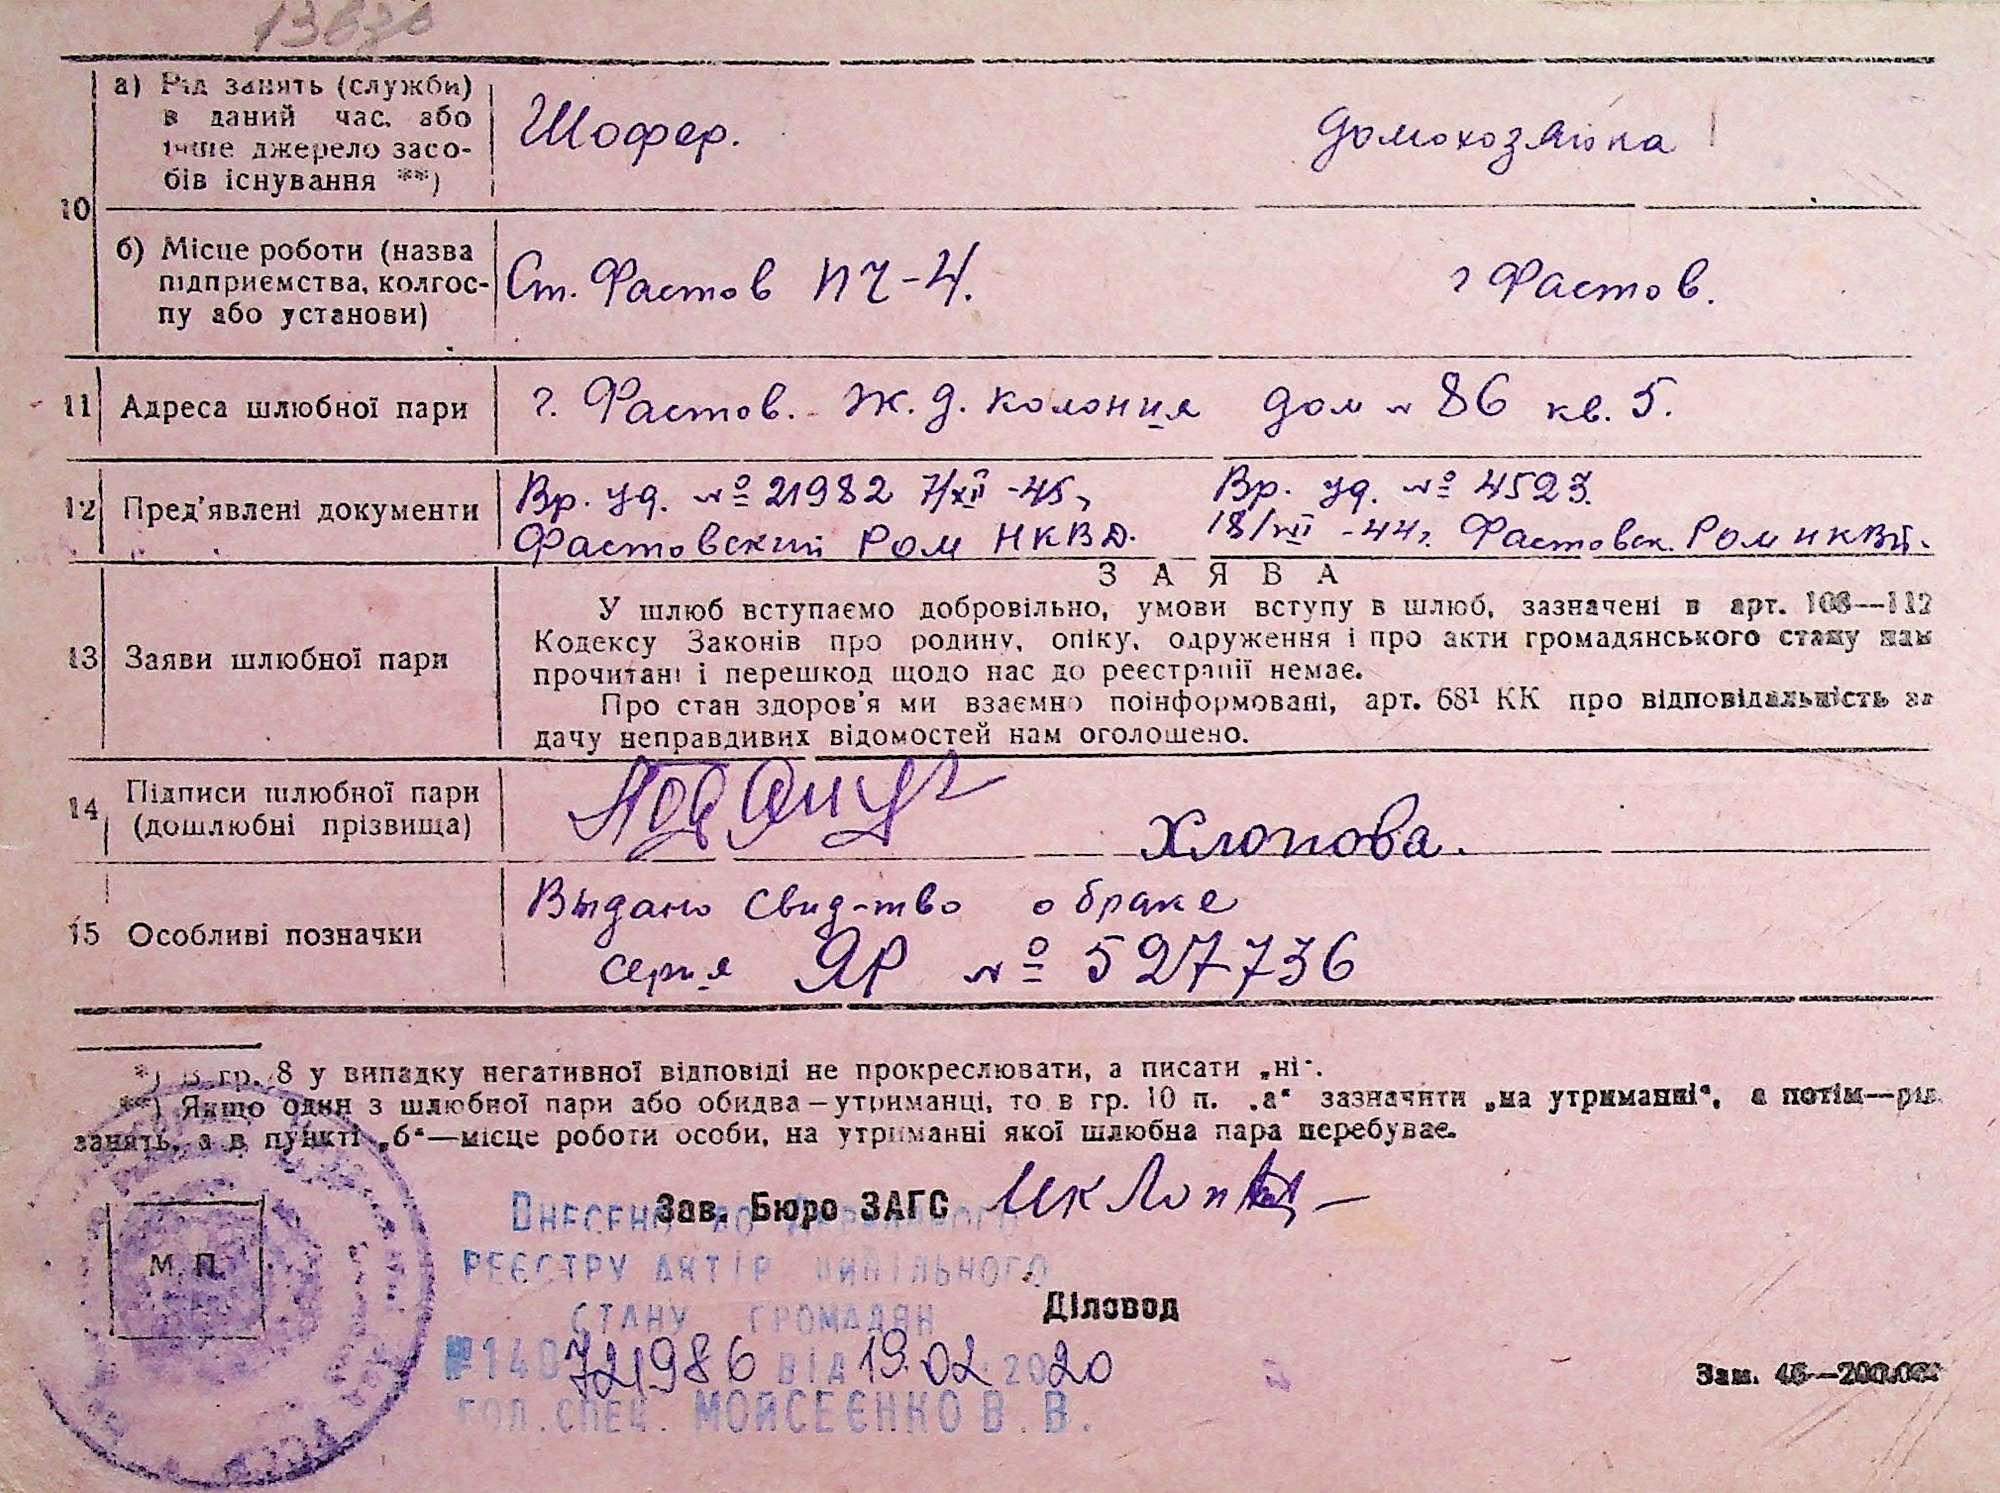 13870
10
а) Рід занять (служби) в даний час, або інше джерело засобів існування **)
Шофер.
домохозяйка
б) Місце роботи (назва підприємства, колгоспу або установи)
Ст. Фастов ПЧ-4.
г Фастов.
11 Адреса шлюбної пари
г. Фастов. Ж.д. колония дом № 86 кв. 5.
12 Пред'явлені документи
Вр. уд. № 21982 7/XII -45,
Фастовский РОМ НКВД.
Вр. уд. № 4523.
18/VII -44 г. Фастовск. РОМ НКВД.
13 Заяви шлюбної пари
ЗАЯВА
У шлюб вступаємо добровільно, умови вступу в шлюб, зазначені в арт. 108—112
Кодексу Законів про родину, опіку, одруження і про акти громадянського стану нам
прочитані і перешкод щодо нас до реєстрації немає.
Про стан здоров'я ми взаємно поінформовані, арт. 68¹ КК про відповідальність за
дачу неправдивих відомостей нам оголошено.
14 Підписи шлюбної пари
(дошлюбні прізвища)
Хлопова.
15 Особливі позначки
Выдано свид-тво о браке
серия ЯР № 527736
*) В гр. 8 у випадку негативної відповіді не прокреслювати, а писати „ні“.
**) Якщо один з шлюбної пари або обидва—утриманці, то в гр. 10 п. „а“ зазначити „на утриманні“, а потім—рід
занять, а в пункті „б“—місце роботи особи, на утриманні якої шлюбна пара перебуває.
Зав. Бюро ЗАГС
М. П.
Внесено до Державного
реєстру актів цивільного
стану громадян
Діловод
№140721986 від 19.02.2020
гол. спец. Мойсеєнко В. В.
Зам. 46—200.00